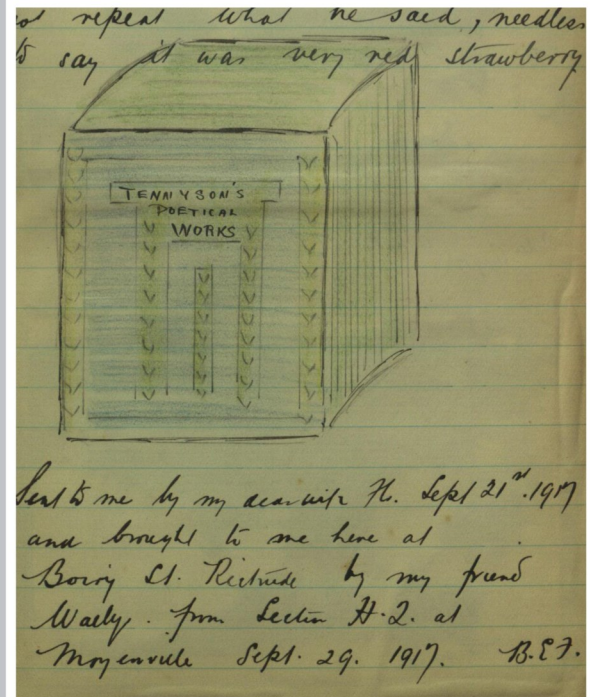 ot repeat what he said, needless
to say it was very red strawberry
TENNYSON'S
POETICAL
WORKS
Sent to me by my dear wife Fl. Sept 21st. 1917
and brought to me here at
Boiry St. Rictrude by my friend
Wally. from Section H.Q. at
Moyenville Sept. 29. 1917. B.E.F.